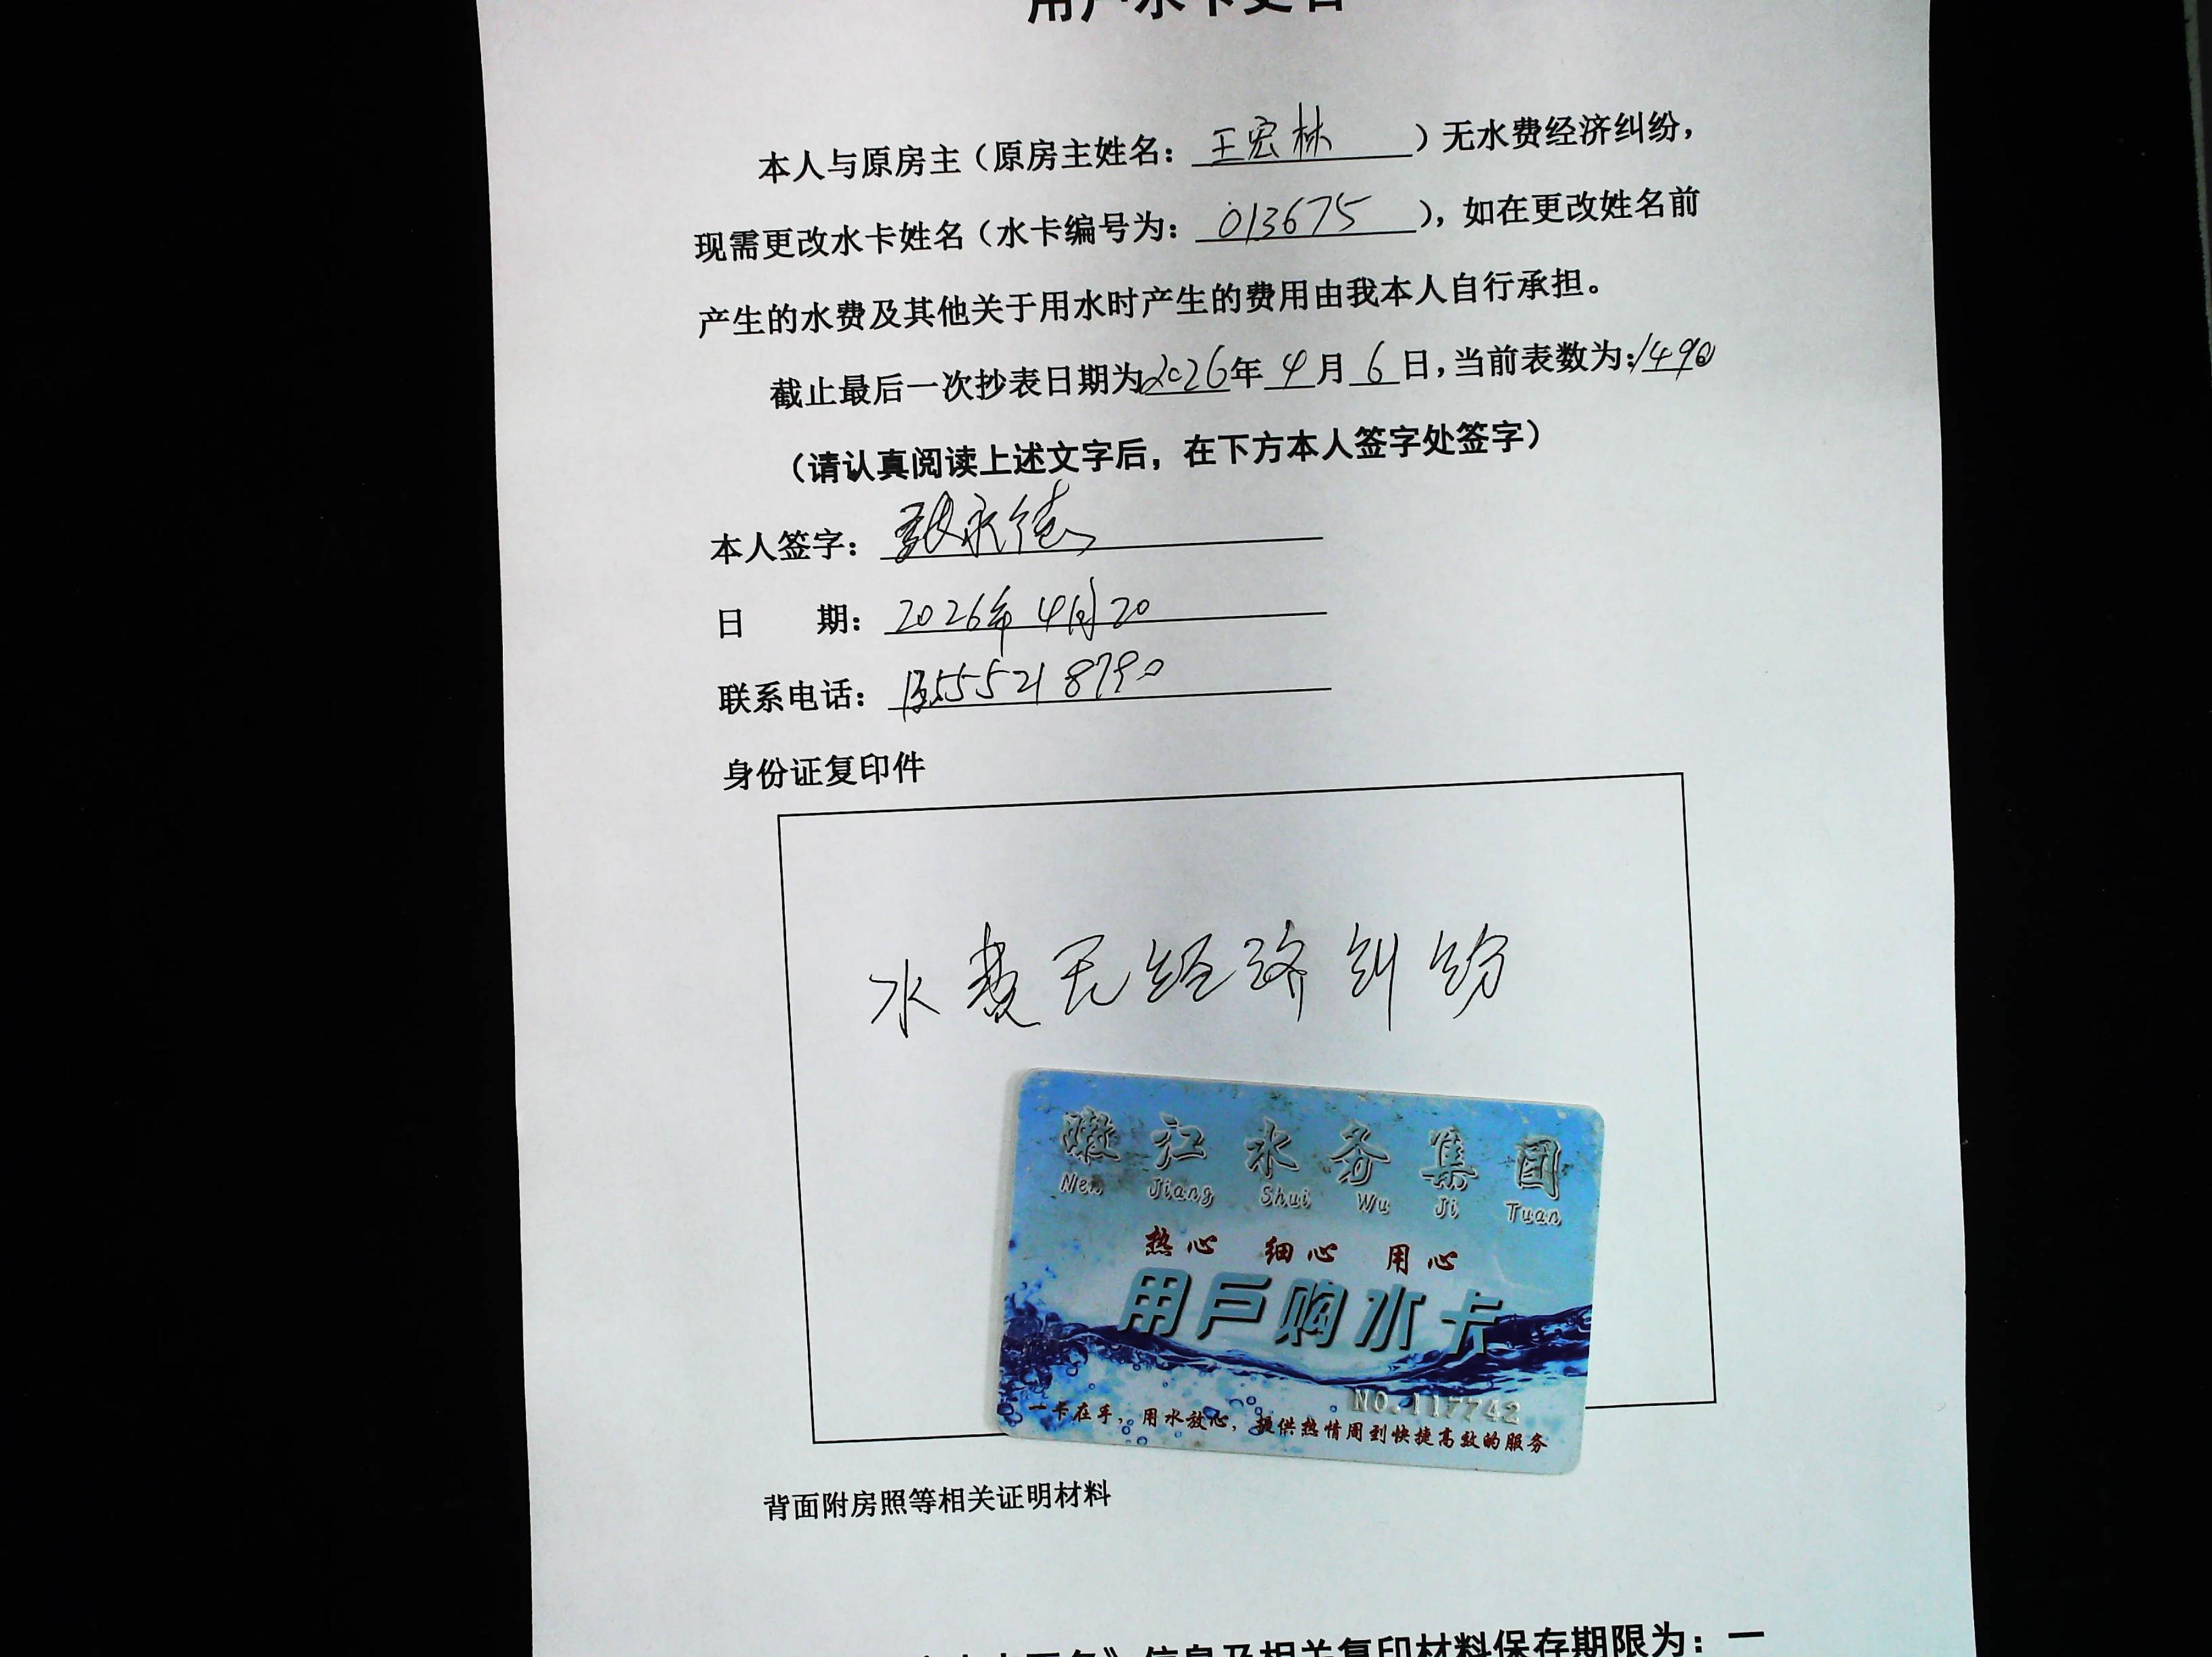 用户水卡更名
本人与原房主（原房主姓名：王宏林）无水费经济纠纷，
现需更改水卡姓名（水卡编号为：013675），如在更改姓名前
产生的水费及其他关于用水时产生的费用由我本人自行承担。
截止最后一次抄表日期为2026年4月6日，当前表数为：1490
（请认真阅读上述文字后，在下方本人签字处签字）
本人签字：永德
日 期：2026年4月20
联系电话：13555218790
身份证复印件
水费无经济纠纷
嫩江水务集团
Nen Jiang Shui Wu Ji Tuan
热心 细心 用心
用户购水卡
NO.117742
一卡在手，用水放心，提供热情周到快捷高效的服务
背面附房照等相关证明材料
更名》信息及相关复印材料保存期限为：一